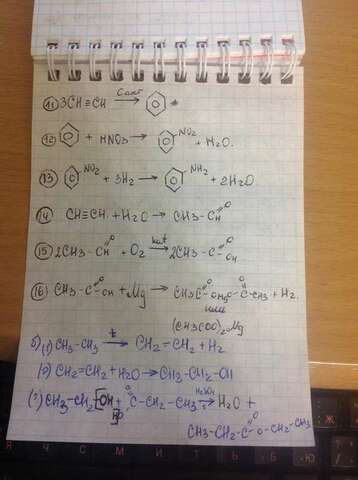 11) 3CH≡CH Cакт →
12) + HNO3 → NO2 + H2O.
13) NO2 + 3H2 → NH2 + 2H2O
14) CH≡CH + H2O → CH3-CH O
15) 2CH3-CH O + O2 kat → 2CH3-C O OH
16) CH3-C O OH + Mg → CH3C O O Mg O O C-CH3 + H2.
или
(CH3COO)2Mg
5) (1) CH3-CH3 t → CH2=CH2 + H2
(2) CH2=CH2 + H2O → CH3-CH2-OH
(3) CH3-CH2 OH + O C-CH2-CH3 H2SO4 → H2O +
HO
CH3-CH2-C O O-CH2-CH3
Я Ч С М И Т Ь